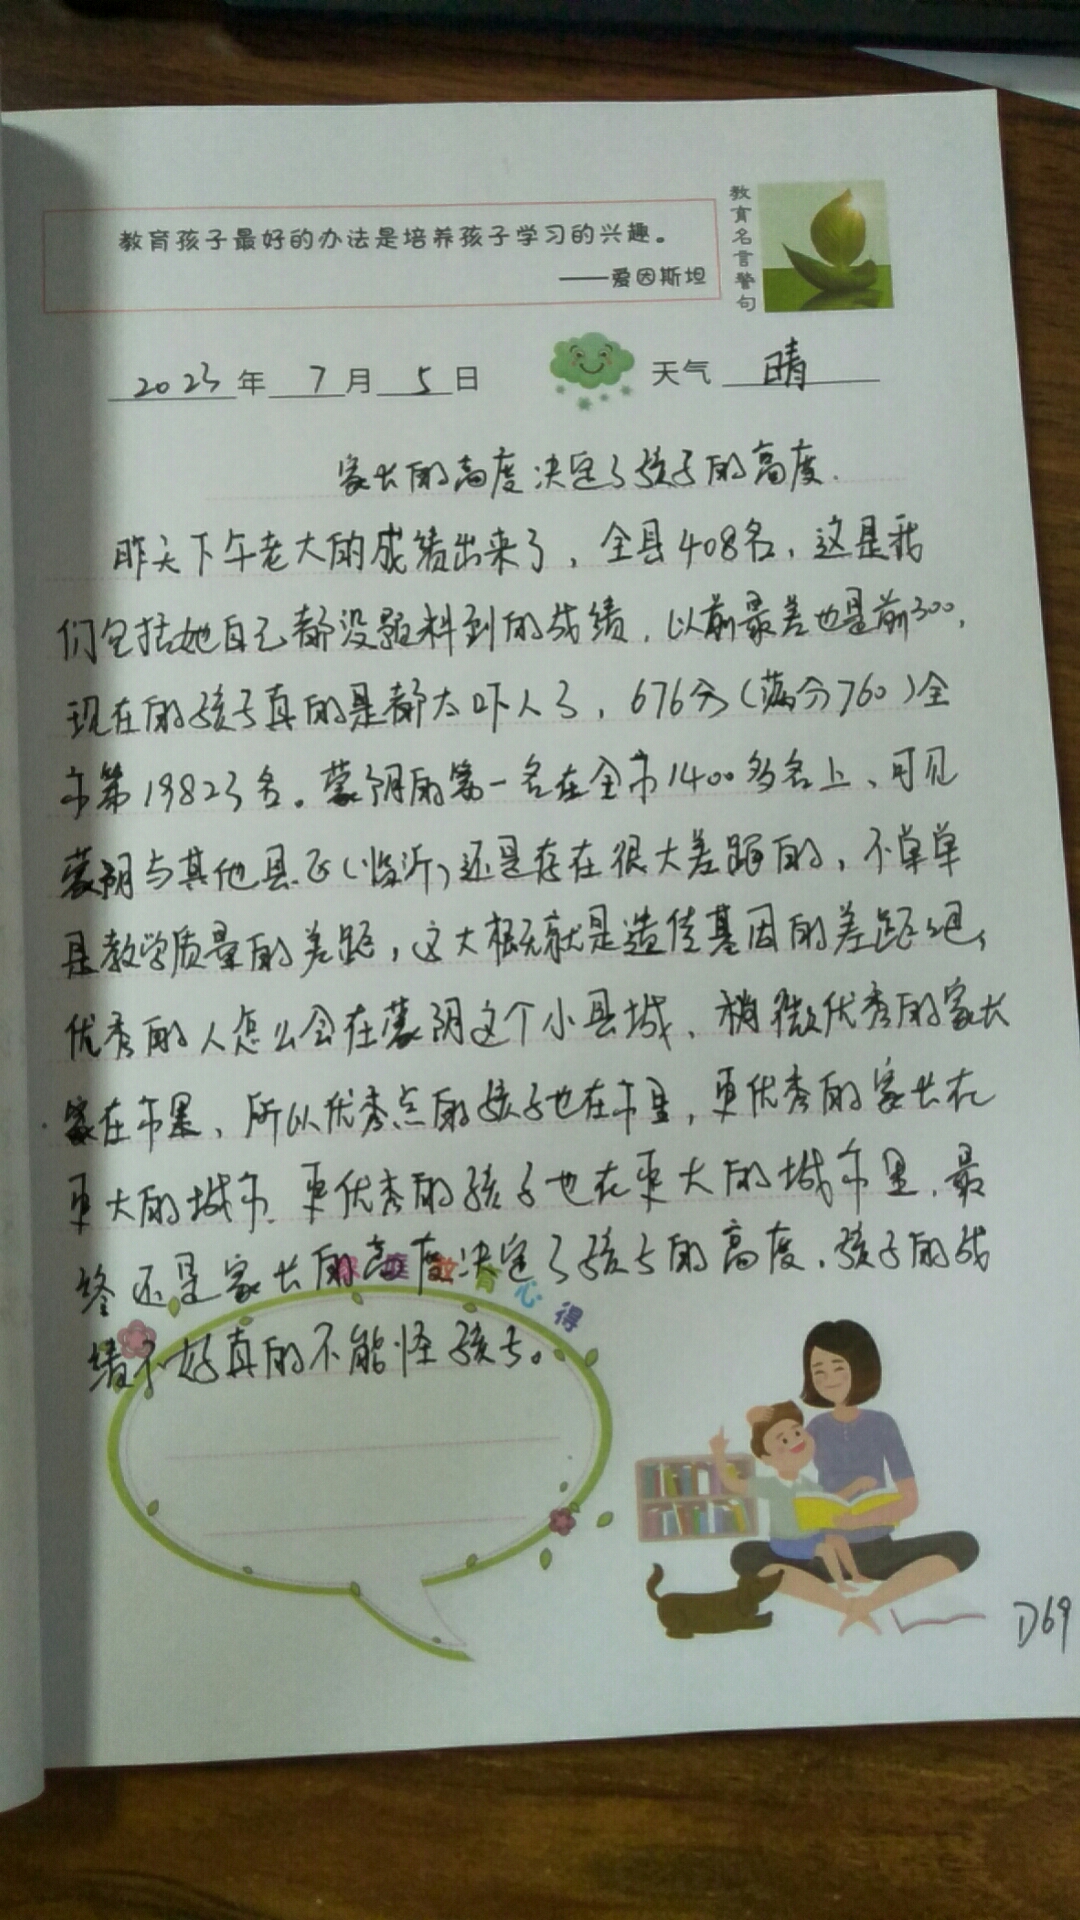 教育孩子最好的办法是培养孩子学习的兴趣。
——爱因斯坦
教育名言警句
2023年 7月 5日 天气 晴
家长的高度决定了孩子的高度.
昨天下午老大的成绩出来了，全县408名，这是我
们包括她自己都没预料到的成绩，以前最差也是前300，
现在的孩子真的是都太吓人了，676分（满分760）全
市第19823名。蒙阴的第一名在全市1400多名上、可见
蒙阴与其他县区(临沂)还是存在很大差距的，不单单
是教学质量的差距，这大概就是遗传基因的差距吧，
优秀的人怎么会在蒙阴这个小县城、稍微优秀的家长
家在市里、所以优秀点的孩子也在市里，更优秀的家长在
更大的城市、更优秀的孩子也在更大的城市里、最
终还是家长的高度决定了孩子的高度、孩子的成
绩不好真的不能怪孩子。
家庭教育心得
D69